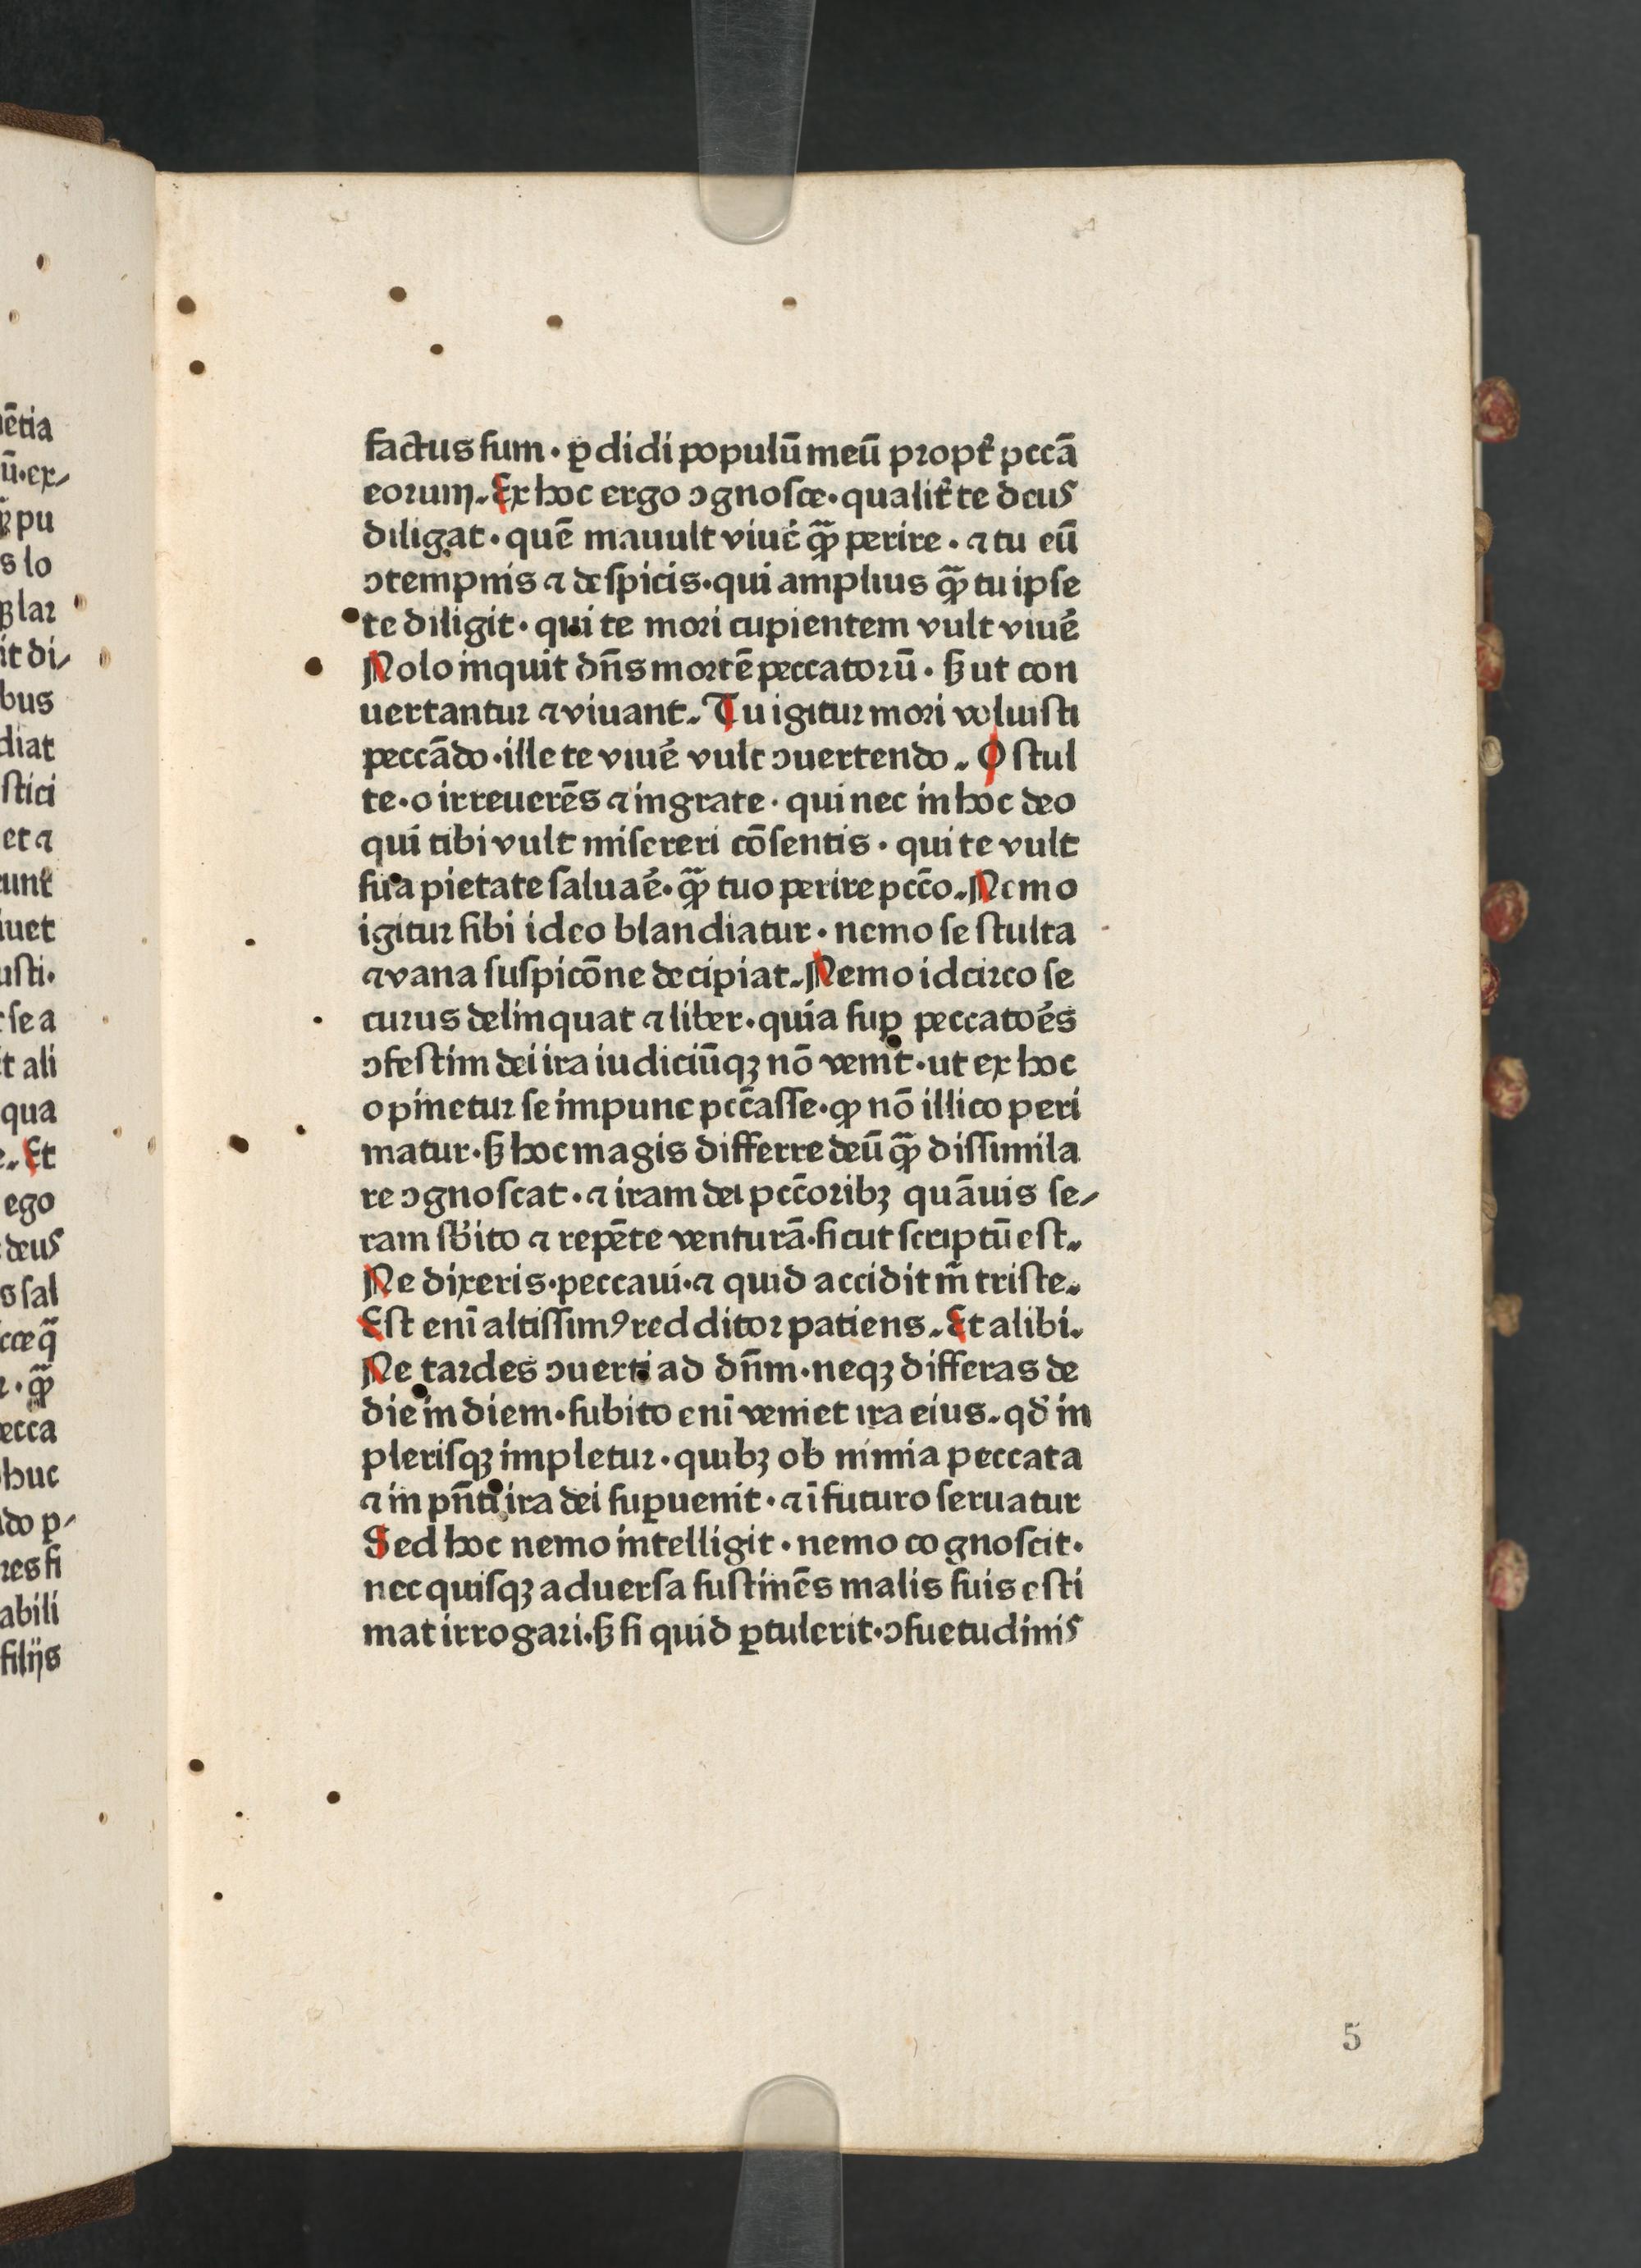 factus ſum· ꝑdidi populū meū propt̉ pccā
eorum. Ex hoc ergo ↄgnoſce· qualit̉ te deus
diligat· quē mauult viuē ꝙ̄ perire· ⁊ tu eū
ↄtempnis ⁊ deſpicis· qui amplius ꝙ̄ tu ipſe
te diligit· qui te mori cupientem vult viuē
Nolo inquit dn̄s mortē peccatorū· ſꝫ ut con
uertantur ⁊ viuant. Tu igitur mori voluiſti
peccādo· ille te viuē vult ↄuertendo. O ſtul
te· o irreuerēs ⁊ ingrate· qui nec in hoc deo
qui tibi vult miſereri cōſentis· qui te vult
ſua pietate ſaluaē· ꝙ̄ tuo perire pcc̄o. Nemo
igitur ſibi ideo blandiatur· nemo ſe ſtulta
⁊ vana ſuſpicōne decipiat. Nemo idcirco ſe
curus delinquat ⁊ liber· quia ſuꝑ peccatoēs
ↄfeſtim dei ira iudiciūqꝫ nō venit· ut ex hoc
opinetur ſe impune pcc̄aſſe· ꝙ nō illico peri
matur· ſꝫ hoc magis differre deū ꝙ̄ diſſimila
re ↄgnoſcat· ⁊ iram dei pcc̄oribꝫ quāuis ſe⸗
ram ſb̄ito ⁊ repēte venturā· ſicut ſcriptū eſt.
Ne dixeris· peccaui· ⁊ quid accidit m̄ triſte.
Eſt enī altiſſimꝰ redditor patiens. Et alibi.
Ne tardes ↄuerti ad dn̄m· neqꝫ differas de
die in diem· ſubito enī veniet ira eius. qd̄ in
pleriſqꝫ impletur· quibꝫ ob nimia peccata
⁊ in pn̄ti ira dei ſuꝑuenit· ⁊ ī futuro ſeruatur
Sed hoc nemo intelligit· nemo cognoſcit·
nec quiſqꝫ aduerſa ſuſtinēs malis ſuis eſti
mat irrogari· ſꝫ ſi quid ꝑtulerit· ↄſuetudinis
5